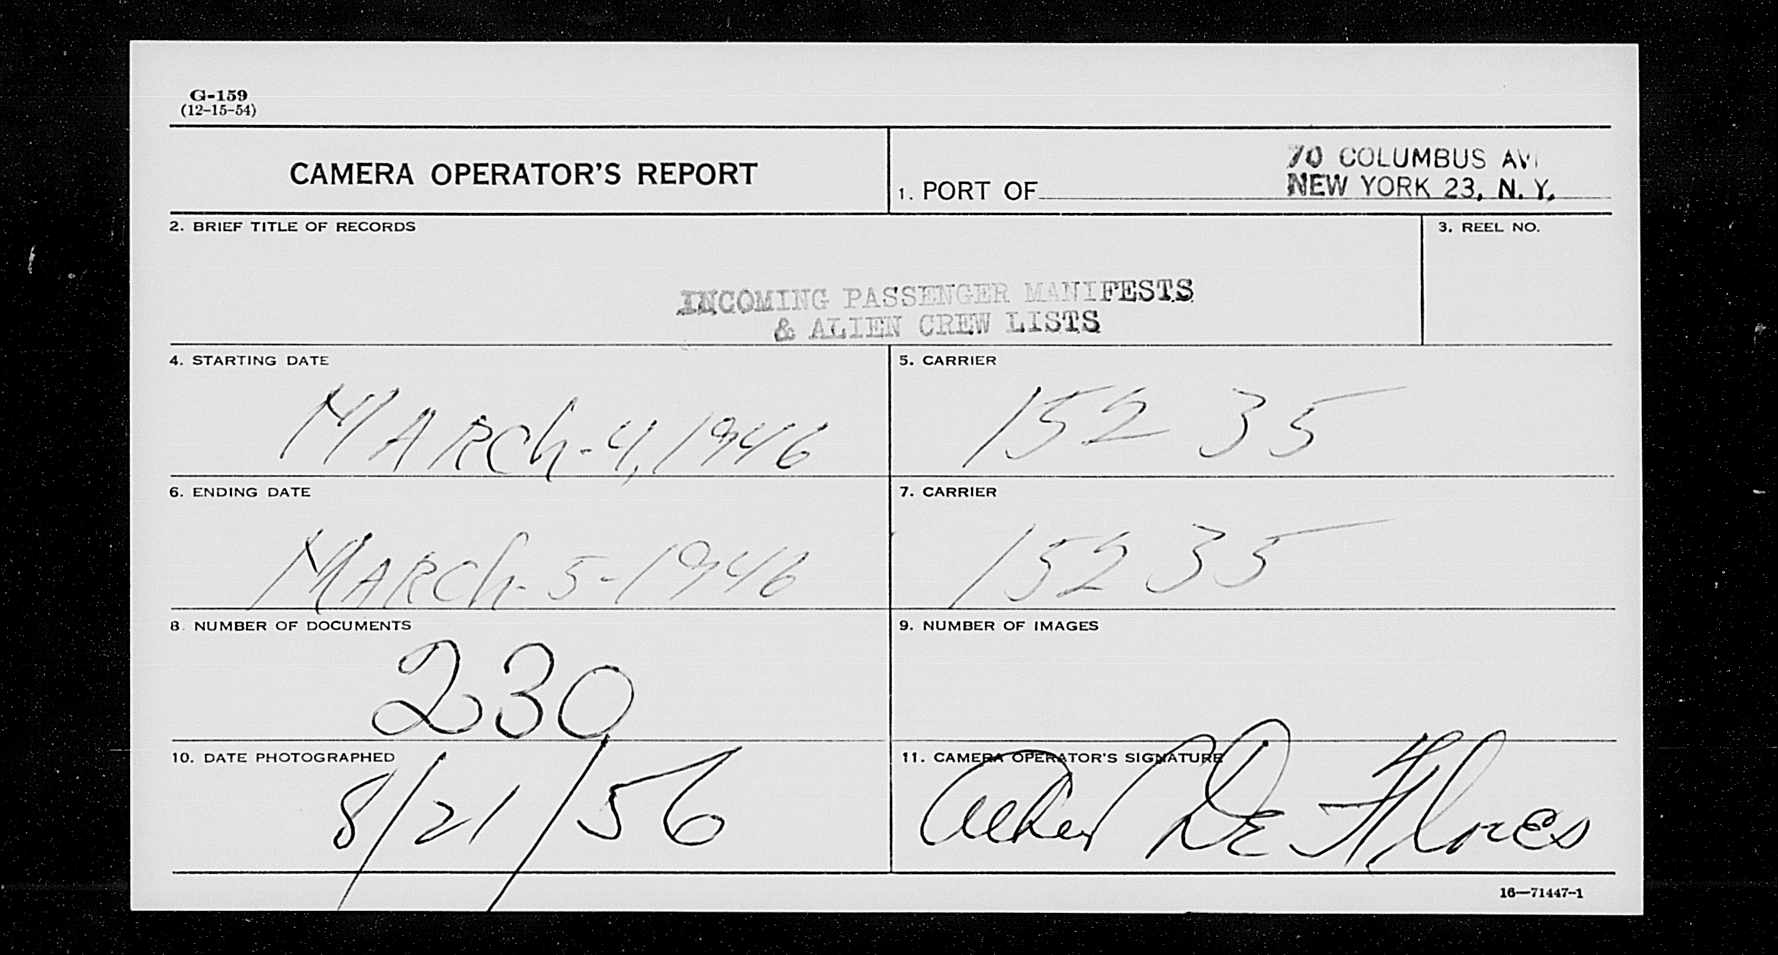 G-159
(12-15-54)
CAMERA OPERATOR'S REPORT
70 COLUMBUS AV
1. PORT OF NEW YORK 23, N. Y.
2. BRIEF TITLE OF RECORDS
3. REEL NO.
INCOMING PASSENGER MANIFESTS
& ALIEN CREW LISTS
4. STARTING DATE
5. CARRIER
MARCh-4, 1946
15235
6. ENDING DATE
7. CARRIER
MARCh-5-1946
15235
8. NUMBER OF DOCUMENTS
9. NUMBER OF IMAGES
230
10. DATE PHOTOGRAPHED
11. CAMERA OPERATOR'S SIGNATURE
8/21/56
De Flores
16—71447-1